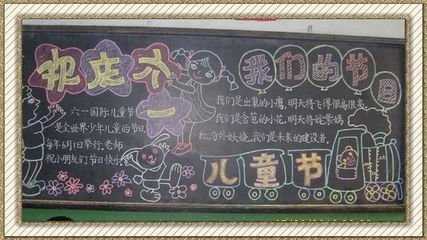 祝庆六一
六一国际儿童节
是全世界少年儿童的节日
每年6月1日举行,老师
祝小朋友们节日快乐
我们的节日
我们是出巢的小鹰,明天将飞得很高很高
我们是含苞的小花,明天将
我们是未来的建设者。
儿童节